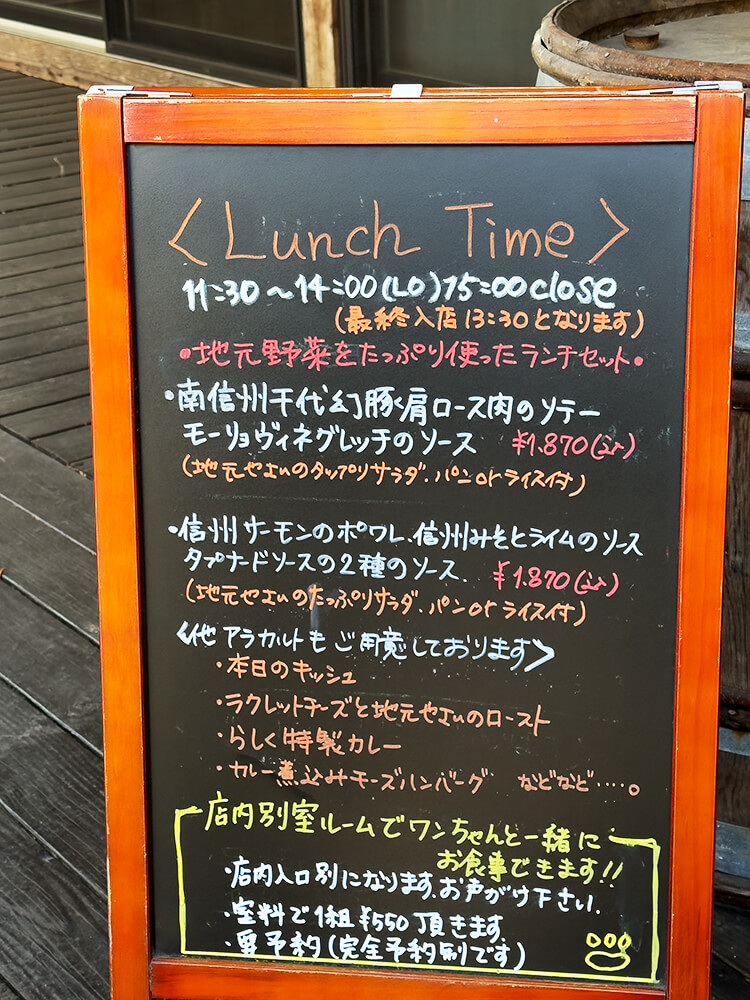 <Lunch Time>
11:30~14:00(LO)15:00close
(最終入店13:30となります)
•地元野菜をたっぷり使ったランチセット•
•南信州千代幻豚肩ロース肉のソテー
モーリョヴィネグレッチのソース ¥1.870(込)
(地元やさいのタップリサラダ、パンorライス付)
•信州サーモンのポワレ、信州みそとライムのソース
タプナードソースの2種のソース. ¥1.870(込)
(地元やさいのたっぷりサラダ、パンorライス付)
<他アラカルトもご用意しております>
・本日のキッシュ
・ラクレットチーズと地元やさいのロースト
・らしく特製カレー
・カレー煮込みチーズハンバーグ などなど・・・・。
店内別室ルームでワンちゃんと一緒に
お食事できます!!
・店内入口別になります、お声がけ下さい.
・室料で1組¥550頂きます
・要予約(完全予約制です)